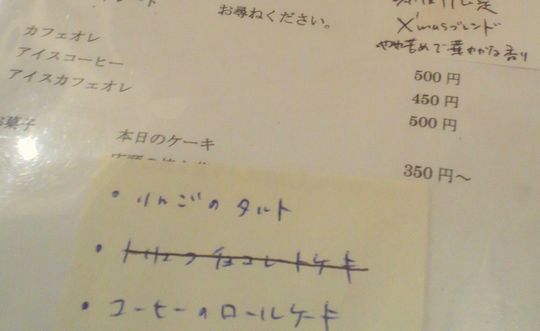 レート
お尋ねください。
X'masブレンド
やや苦めで華やかな香り
カフェオレ 500円
アイスコーヒー 450円
アイスカフェオレ 500円
お菓子 本日のケーキ 350円〜
・りんごのタルト
・コーヒーのロールケーキ